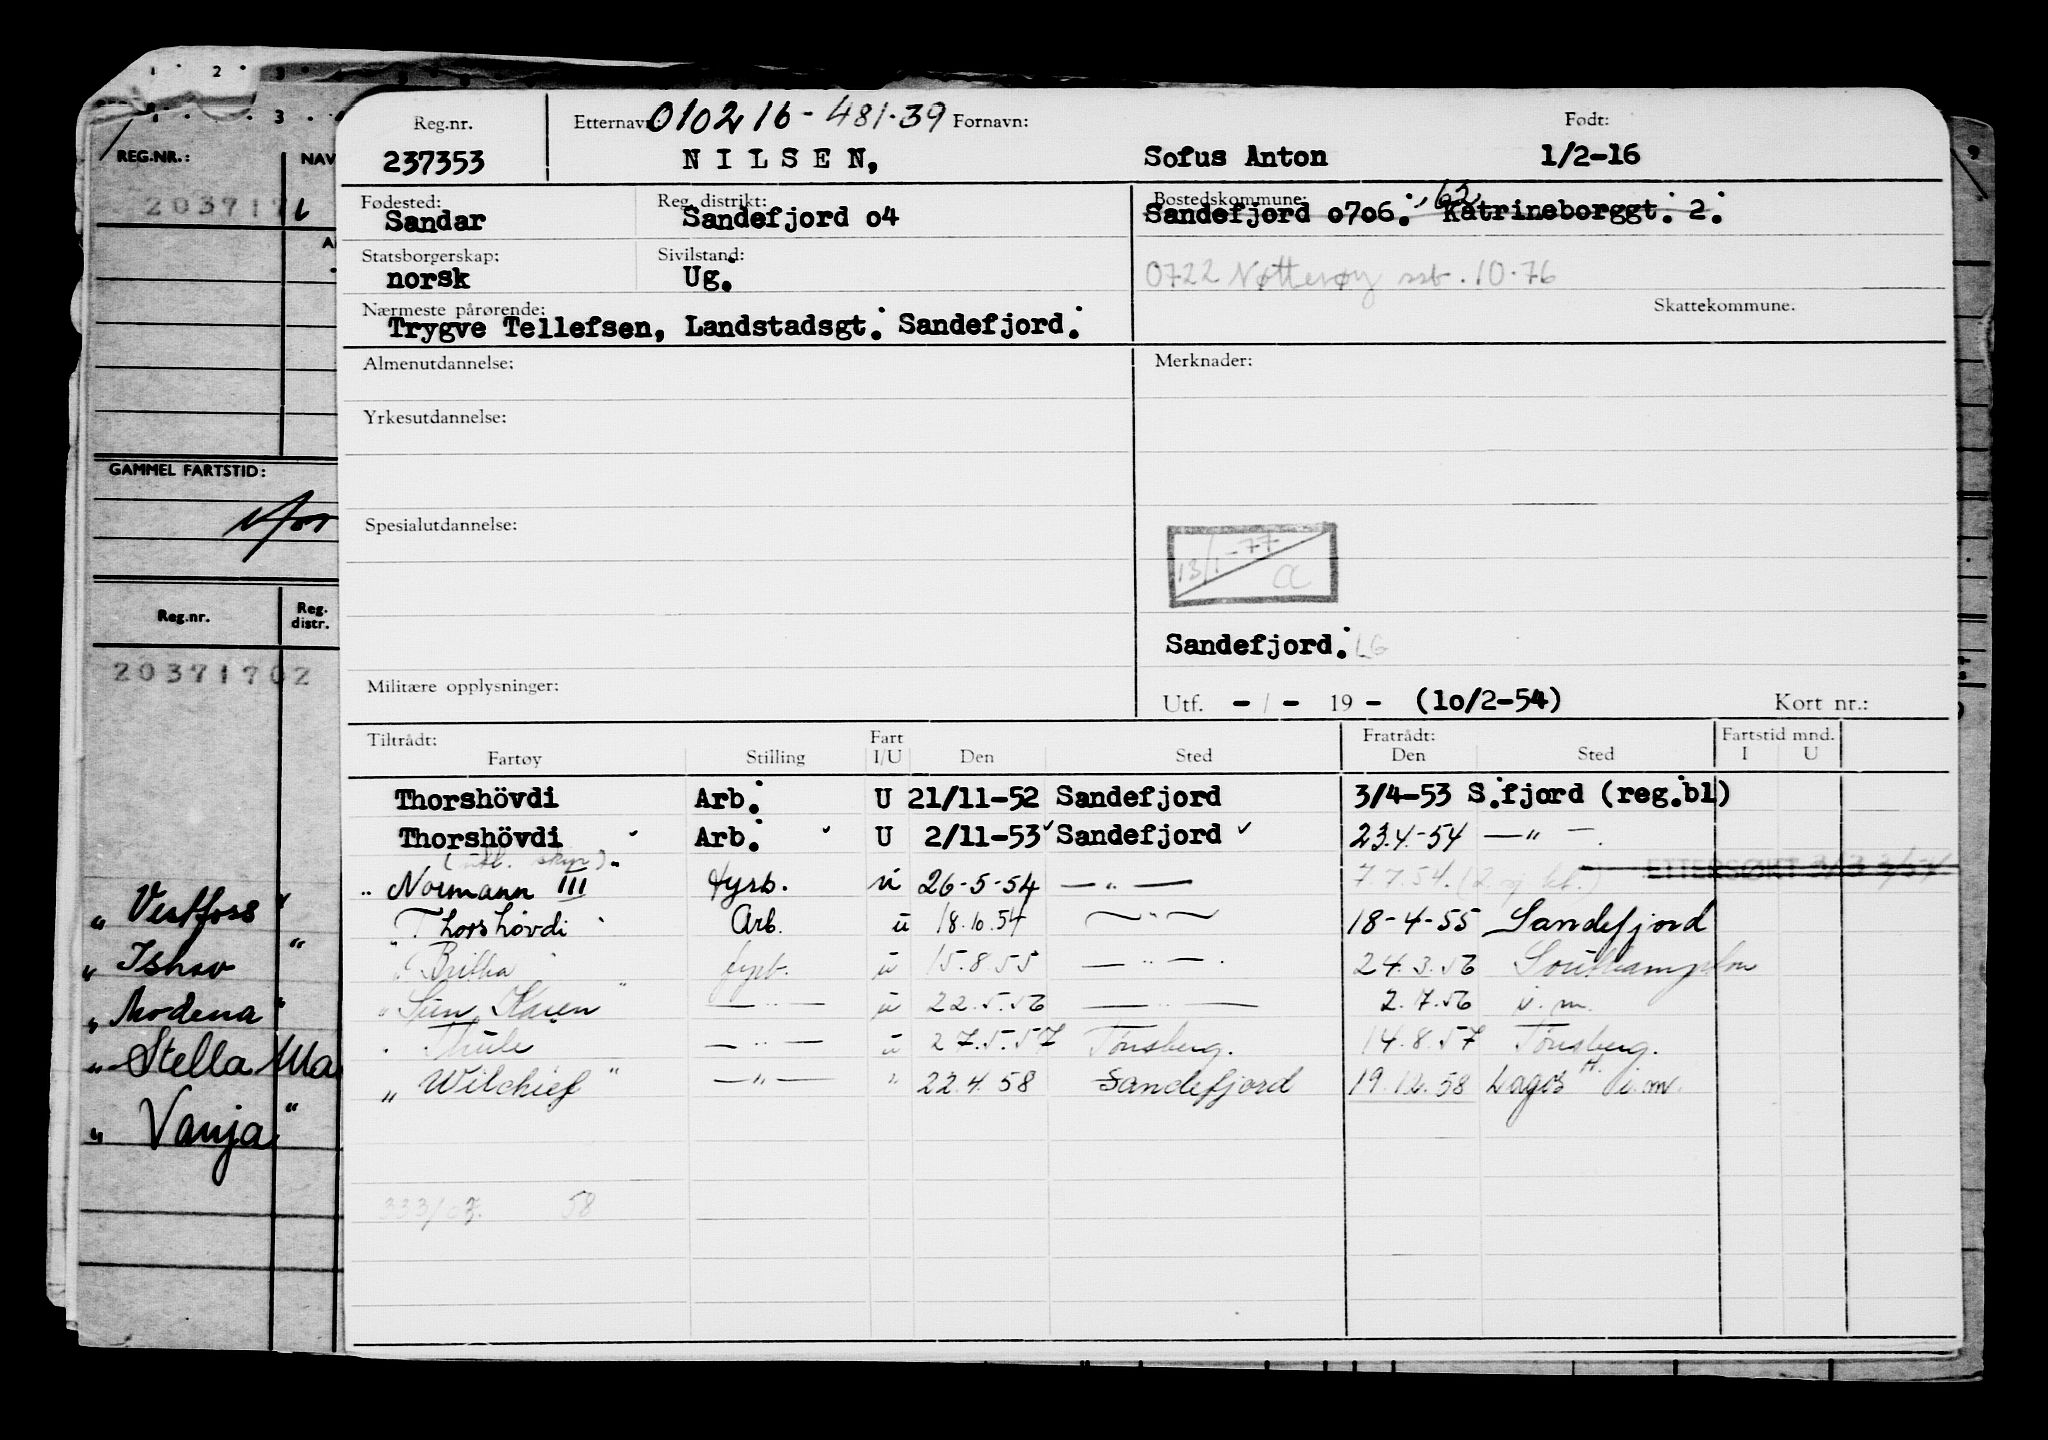 1 2 3
3
REG.NR.: NAV
2039171
GAMMEL FARTSTID:
Reg.nr. Reg. distr.
20371702
„ Vestfoss "
„ Ishav "
„ Modena "
„ Stella Ma
„ Vanja "
Reg.nr. Etternavn: 010216-481.39 Fornavn: Født:
237353 NILSEN, Sofus Anton 1/2-16
Fødested: Reg. distrikt: Bostedskommune: 62
Sandar Sandefjord o4 Sandefjord o7o6. Katrineborggt. 2.
Statsborgerskap: Sivilstand:
norsk Ug. 0722 Nøtterøy ssb. 10.76
Nærmeste pårørende: Skattekommune.
Trygve Tellefsen, Landstadsgt. Sandefjord.
Almenutdannelse: Merknader:
Yrkesutdannelse:
Spesialutdannelse:
13/1-77
a
Sandefjord. LG
Militære opplysninger:
Utf. - / - 19 - (1o/2-54) Kort nr.:
Tiltrådt: Fart Fratrådt: Fartstid mnd.
Fartøy Stilling I/U Den Sted Den Sted I U
Thorshövdi Arb. U 21/11-52 Sandefjord 3/4-53 S.fjord (reg.bl)
Thorshövdi Arb. U 2/11-53 Sandefjord 23.4-54 — " —
„ Normann III Fyrb. U 26-5-54 — " — 7.7.54. ETTERSØKT
„ Thorshövdi Arb. U 18.10.54 — " — 18-4-55 Sandefjord
„ Britta " fyrb. U 15.8.55 — " — 24.3.56 Southampton
„ Sun Karen " — " — U 22.5.56 — " — 2.7.56 i.m.
Thule — " — U 27.5.57 Tönsberg. 14.8.57 Tönsberg.
„ Wilchief " — " — " 22.4.58 Sandefjord 19.12.58 Lagos i.m.
58